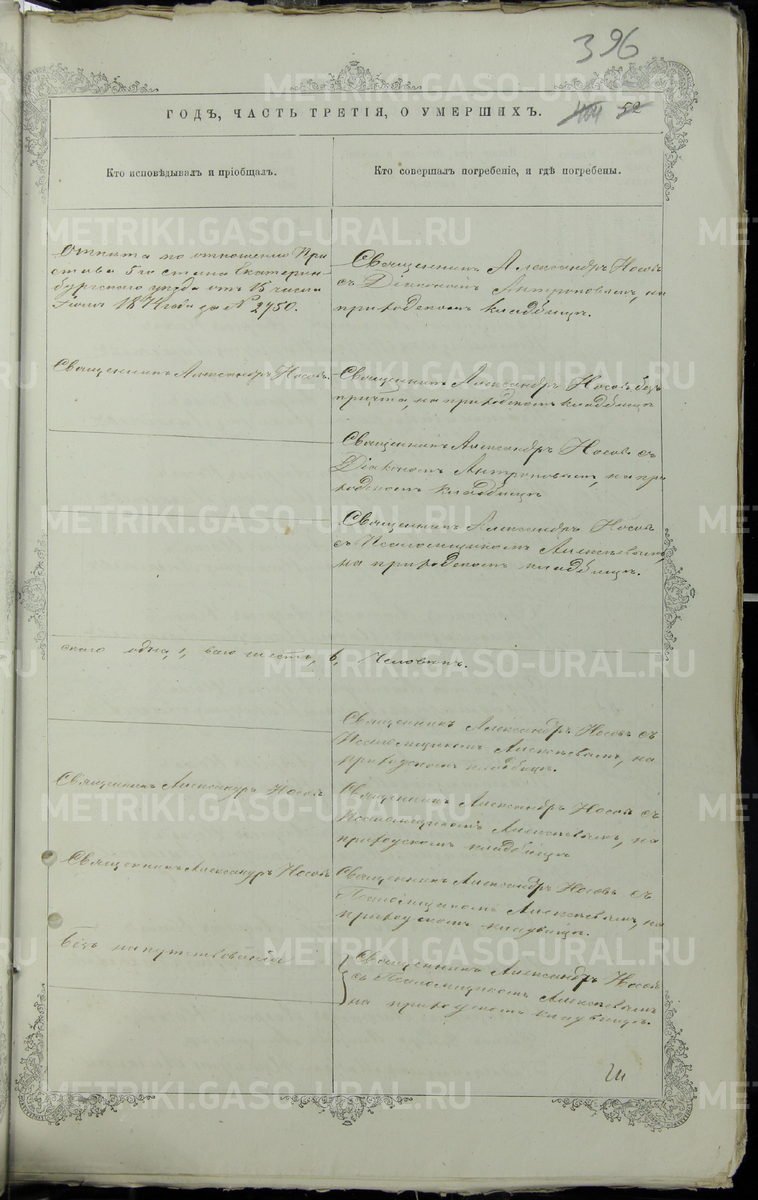 396
ГОДЪ, ЧАСТЬ ТРЕТІЯ, О УМЕРШИХЪ.
52
Кто исповѣдывалъ и пріобщалъ.
Кто совершалъ погребеніе, и гдѣ погребены.
Отпѣта по отношенію При
става 5го стана Екатерин-
бургскаго уѣзда отъ 15 числа
1874 года за № 2750.
Священникъ Александръ Носовъ
съ Діакономъ Антроповымъ, на
приходскомъ кладбищѣ.
Священникъ Александръ Носовъ.
Священникъ Александръ Носовъ безъ
причта, на приходскомъ кладбищѣ
Священникъ Александръ Носовъ съ
Діакономъ Антроповымъ, на при
ходскомъ кладбищѣ
Священникъ Александръ Носовъ
съ Псаломщикомъ Алексѣевымъ,
на приходскомъ кладбищѣ.
ского одна, 1, всего шесть, 6, Человѣкъ.
Священникъ Александръ Носовъ съ
Псаломщикомъ Алексѣевымъ, на
приходскомъ кладбищѣ.
Священникъ Александръ Носовъ
Священникъ Александръ Носовъ съ
Псаломщикомъ Алексѣевымъ, на
приходскомъ кладбищѣ
Священникъ Александръ Носовъ
Священникъ Александръ Носовъ съ
Псаломщикомъ Алексѣевымъ, на
приходскомъ кладбищѣ.
Безъ напутствованія
Священникъ Александръ Носовъ
съ Псаломщикомъ Алексѣевымъ
на приходскомъ кладбищѣ.
METRIKI.GASO-URAL.RU